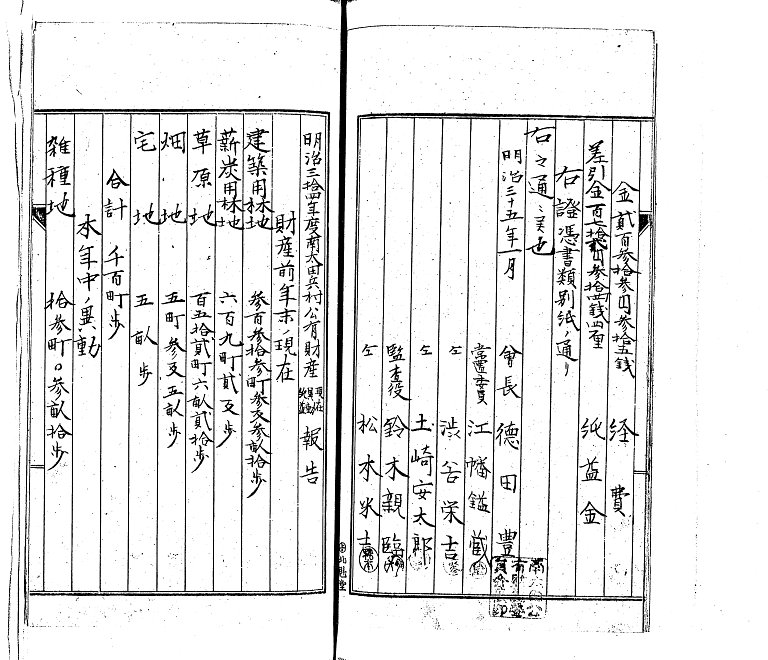 金貳百参拾参円参拾五銭 経費
差引金百七拾貳円参拾四銭四厘 純益金
右證憑書類別紙ノ通リ
右之通ニ候也
明治三十五年一月
會長 徳田豊
常置委員 江幡鎰蔵
仝 渋谷栄吉
仝 土崎安太郎
監査役 鈴木親臨
仝 松木米吉
明治三拾四年度南太田共村公有財産 報告
財産前年末ノ現在
建築用林地 参百参拾参町参反参畝拾歩
薪炭用林地 六百九町貳反歩
草原地 百五拾貳町六畝貳拾歩
畑地 五町参反五畝歩
宅地 五畝歩
合計 千百町歩
本年中ノ異動
雑種地 拾参町〇参畝拾歩